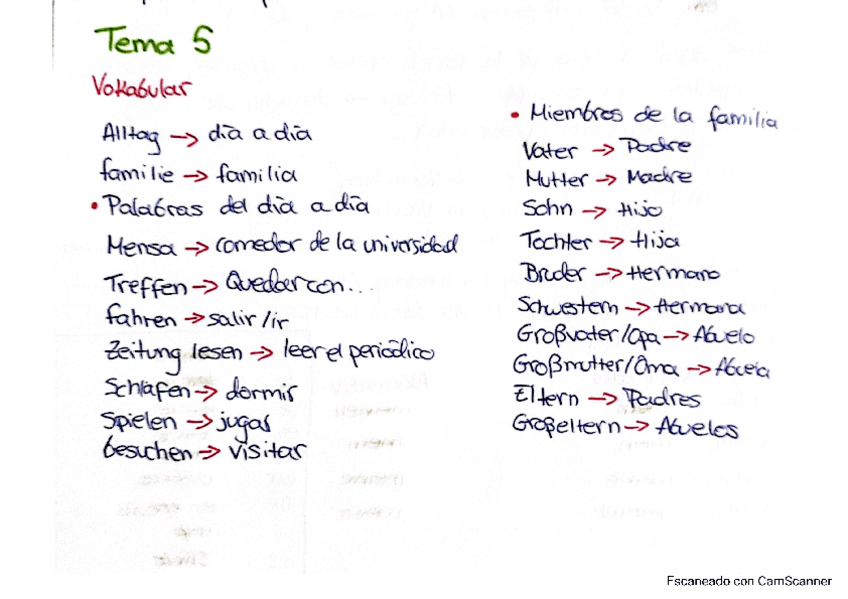 Tema 5
Vokabular
Alltag → día a día
familie → familia
• Palabras del día a día
Mensa → comedor de la universidad
Treffen → Quedar con...
fahren → salir/ir
Zeitung lesen → leer el periódico
Schlafen → dormir
Spielen → jugar
besuchen → visitar
• Miembros de la familia
Vater → Padre
Mutter → Madre
Sohn → Hijo
Tochter → Hija
Bruder → Hermano
Schwestern → Hermana
Großvater/Opa → Abuelo
Großmutter/Oma → Abuela
Eltern → Padres
Großeltern → Abuelos
Escaneado con CamScanner